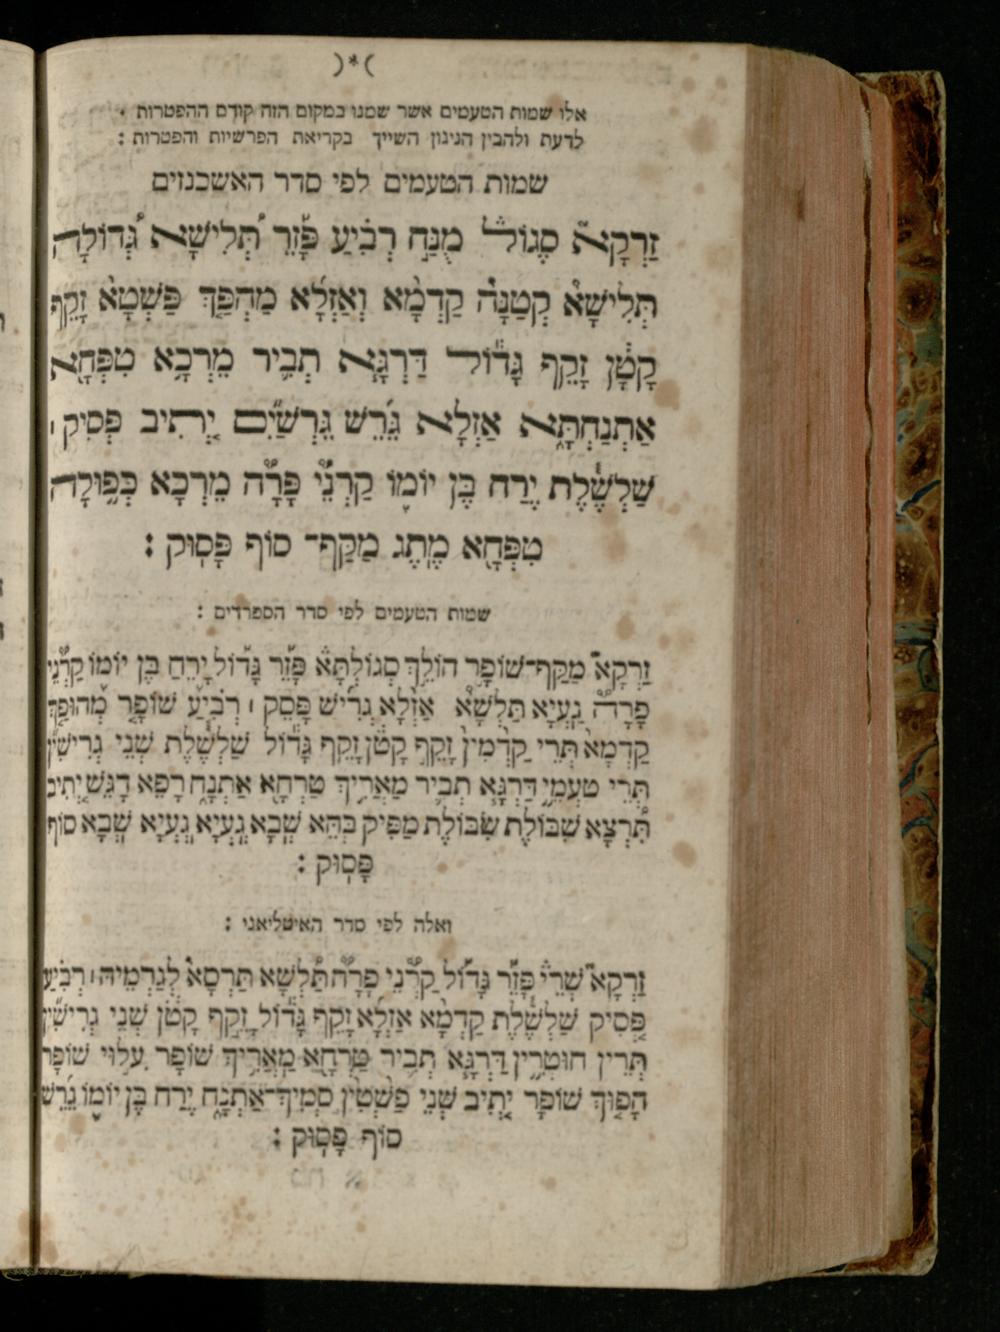 )*(
אלו שמות הטעמים אשר שמנו במקום הזה קודם ההפטרות .
לדעת ולהבין הניגון השייך בקריאת הפרשיות והפטרות :
שמות הטעמים לפי סדר האשכנזים
זַרְקָא֮ סֶגוֹל֒ מֻנַּ֣ח רְבִ֗יעַ פָּזֵ֡ר תְּ֠לִישָׁא גְ֠דוֹלָה
תְּלִישָׁא֩ קְטַנָּה֩ קַדְמָ֨א וְאַזְלָ֜א מַהְפַּ֤ךְ פַּשְׁטָא֙ זָקֵף
קָטָ֔ן זָקֵף גָּד֕וֹל דַּרְגָּ֧א תְּבִ֛יר מֵרְכָ֥א טִפְּחָ֖א
אַתְנַחְתָּ֑א אַזְלָא גֵּ֜רֵשׁ גֵּרְשַׁ֞יִם יְ֚תִיב פְּסִיק ׀
שַׁלְשֶׁ֓לֶת יֶרַח בֶּן יוֹמ֪וֹ קַרְנֵי֟ פָּרָ֟ה מֵרְכָא כְּפוּלָ֦ה
טִפְּחָ֖א מֶתֶג מַקַּף־ סוֹף פָּסֽוּק :
שמות הטעמים לפי סדר הספרדים :
זַרְקָא֮ מַקַּף־שׁוֹפָ֣ר הוֹלֵ֣ךְ סְגוֹלְתָּא֒ פָּזֵ֡ר גָּדוֹל יָרֵחַ בֶּן יוֹמוֹ קַרְנֵ֟י
פָרָה֟ גַּעְיָא תַּלְשָׁא֩ אַזְלָ֨א גֵּרִ֜ישׁ פָּסֵק ׀ רְבִ֗יעַ שׁוֹפָ֤ר מְהוּפָּ֤ךְ
קַדְמָא֙ תְּרֵי קַדְמִין֙ זָקֵף קָטֹ֔ן זָקֵף גָּד֕וֹל שַׁלְשֶׁ֓לֶת שְׁנֵי גְרִישִׁ֞ין
תְּרֵי טַעְמֵ֦י דַּרְגָּ֧א תְּבִ֛יר מַאֲרִ֥יךְ טַרְחָ֖א אַתְנָ֑ח רָפֵא דָגֵשׁ יְ֚תִיב
תִּ֠רְצָא שִׁבּוֹלֶת שִׂבּוֹלֶת מַפִּיק בְּהֵּא שְׁבָא גַּעְיָא גַּעְיָא שְׁבָא סוֹף
פָּסֽוּק :
ואלה לפי סדר האיטליאני :
זַרְקָא֮ שְׁרֵי֒ פָּזֵ֡ר גָּדוֹל קַרְנֵי פָרָה֟ תַּלְשָׁא תַּרְסָא֩ לְגַרְמֵיהּ׀ רְבִ֗יעַ
פְּסִיק שַׁלְשֶׁ֓לֶת קַדְמָ֨א אַזְלָ֜א זָקֵף גָּד֕וֹל זָקֵף קָטֹ֔ן שְׁנֵי גְרִישִׁ֞ין
תְּרֵין חוּטְרִ֦ין דַּרְגָּ֧א תְּבִ֛יר טַרְחָ֖א מַאֲרִ֥יךְ שׁוֹפָר עִלּוּי שׁוֹפָר
הָפ֤וּךְ שׁוֹפָר יְ֚תִיב שְׁנֵי פַשְׁטִ֙ין֙ סְמִיךְ־אַתְנָ֑ח יֶרַח בֶּן יוֹמ֪וֹ גֵּ֜רֵשׁ
סוֹף פָּסֽוּק :